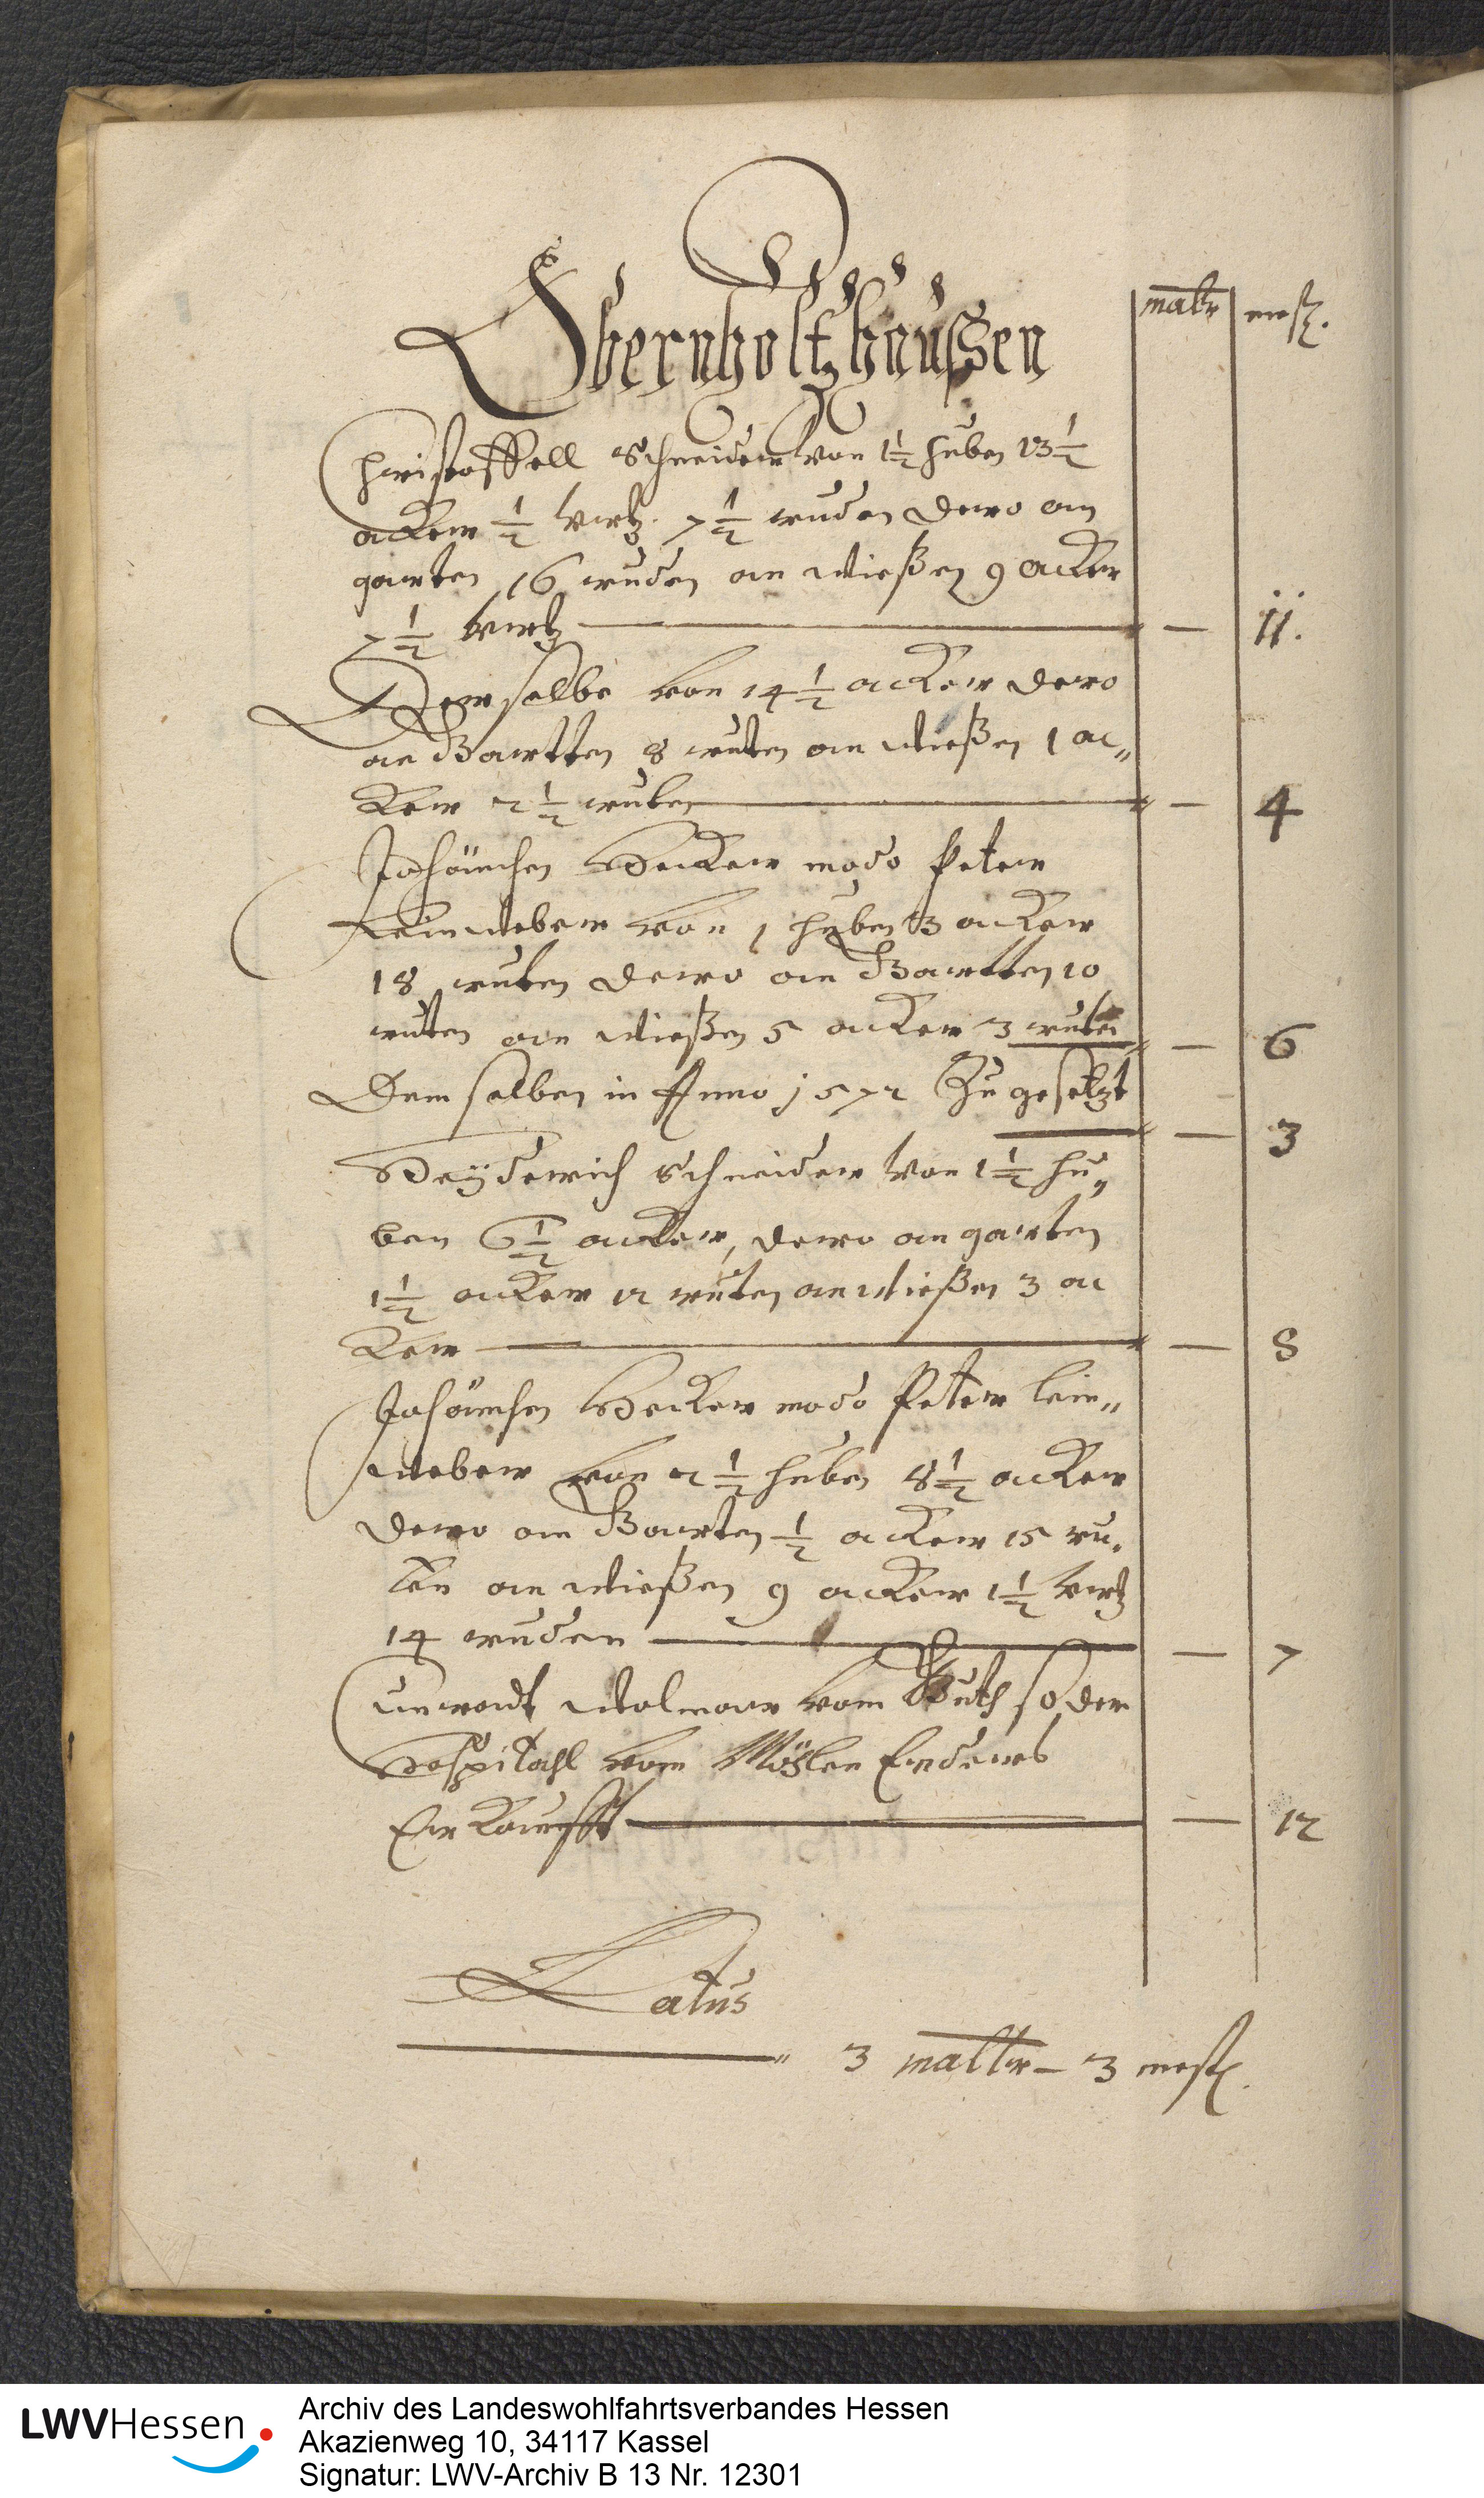 Obernholtzhaussen
maltr mest.
Christoffell Schneider von 1½ huben 13½
acker ½ vrtz. 7½ ruden dero an
garten 16 ruden an wießen 9 acker
7½ vrtz — 11.
Derselbe von 14½ acker dero
an Gartten 8 ruten an wießen 1 ac„
ker 2½ ruten — 4
Johänchen Becker modo Peter
Leinweber von 1 huben 3 acker
18 ruten dero an Gartten 10
ruten an wießen 5 acker 3 ruten — 6
Dem selben in Anno 1572 Zu gesetzt
— 3
Heyderich Schneider von 1½ hu„
ben 6½ acker, dero an garten
1½ acker 12 ruten an wießen 3 ac
ker — 8
Johänchen Becker modo Peter lein„
weber von 2½ huben 8½ acker
dero an Garten ½ acker 15 ru„
ten an wießen 9 acker 1½ vrtz
14 ruden — 7
Cunradt Wolmar vom Guth so der
Hospitahl vom Enders
Erkaufft — 12
Latus
3 maltr — 3 mest.
LWVHessen
Archiv des Landeswohlfahrtsverbandes Hessen
Akazienweg 10, 34117 Kassel
Signatur: LWV-Archiv B 13 Nr. 12301